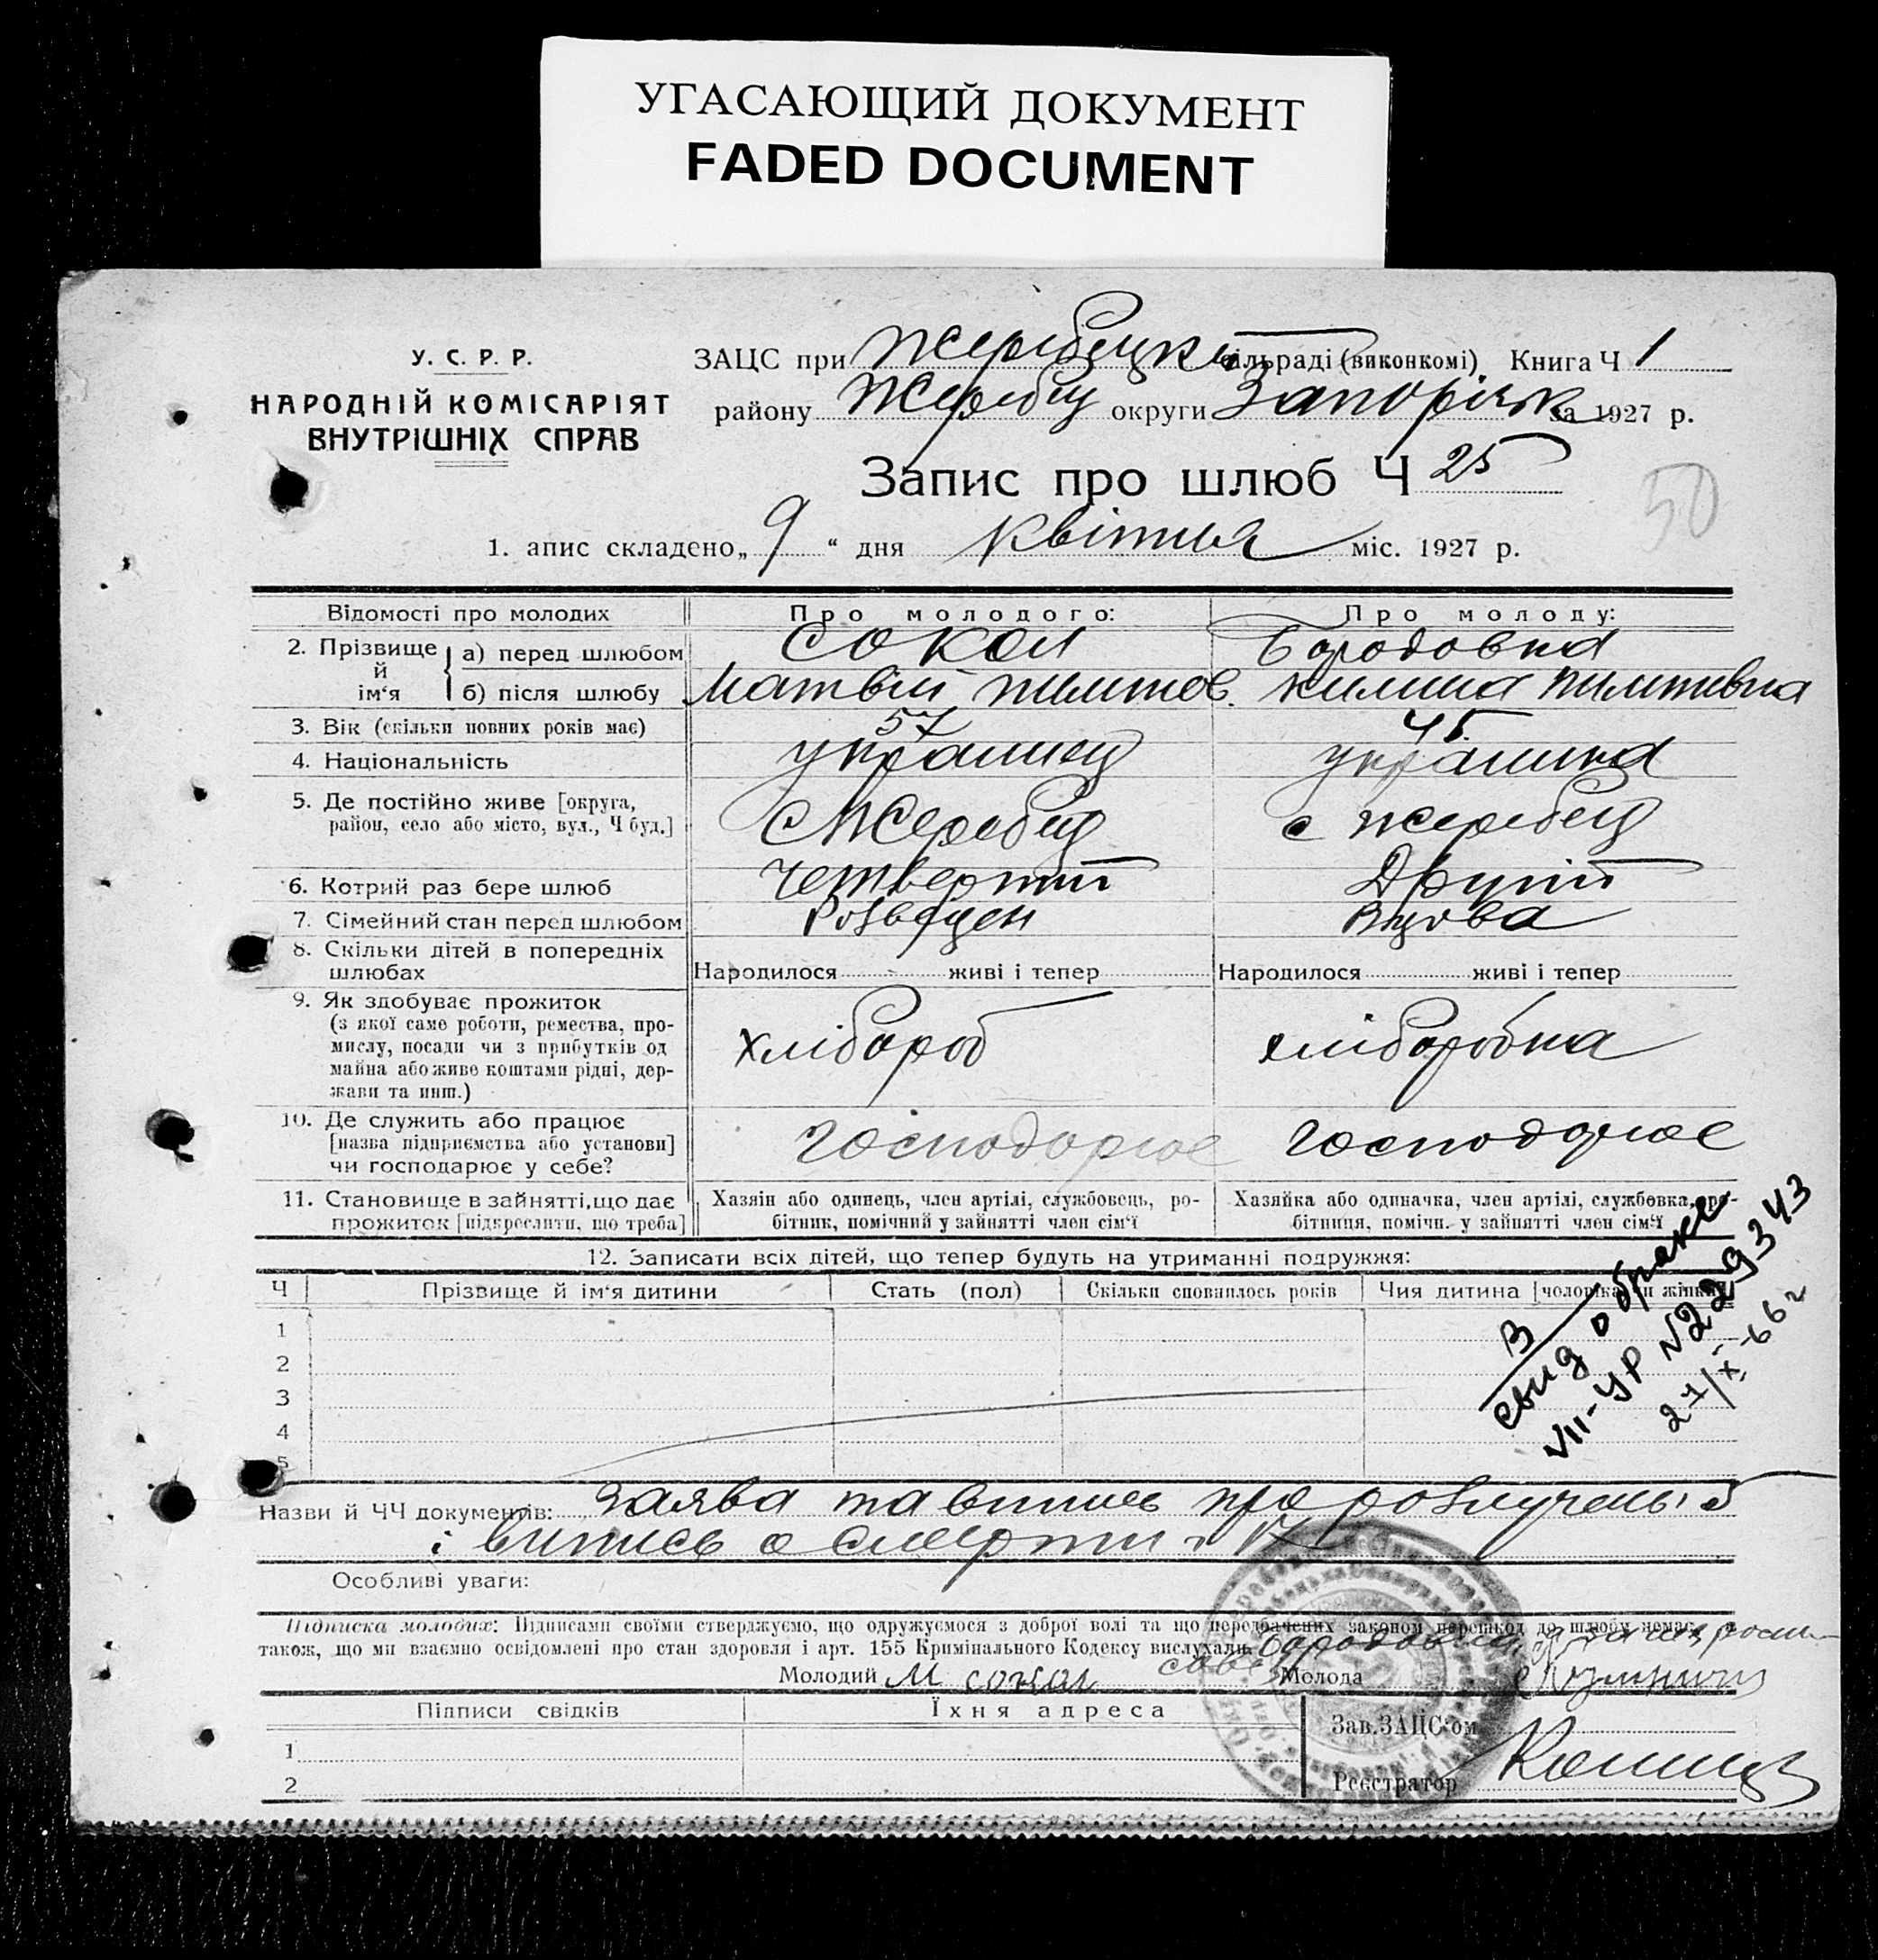 УГАСАЮЩИЙ ДОКУМЕНТ
FADED DOCUMENT
У. С. Р. Р.
НАРОДНІЙ КОМІСАРІЯТ
ВНУТРІШНІХ СПРАВ
ЗАЦС при Жеребецькій сільраді (виконкомі) Книга Ч 1
району Жеребец округи Запоріжж за 1927 р.
Запис про шлюб Ч 25
50
1. апис складено „ 9 “ дня квітня міс. 1927 р.
Відомості про молодих
Про молодого:
Про молоду:
2. Прізвище й ім‘я
а) перед шлюбом
Сокол
Бородовка
б) після шлюбу
Матвій Пилипов.
Килина Пилипивна
3. Вік (скільки повних років має)
57
45.
4. Національність
українец
українка
5. Де постійно живе [округа,
район, село або місто, вул., Ч буд.]
с Жеребец
с Жеребец
6. Котрий раз бере шлюб
Четвертий
Другий
7. Сімейний стан перед шлюбом
Розведен
Вдова
8. Скільки дітей в попередніх
шлюбах
Народилося живі і тепер
Народилося живі і тепер
9. Як здобуває прожиток
(з якої саме роботи, ремества, про-
мислу, посади чи з прибутків од
майна або живе коштами рідні, дер-
жави та инш.)
хлібороб
хліборобка
10. Де служить або працює
[назва підприємства або установи]
чи господарює у себе?
господорює
господорює
11. Становище в зайнятті, що дає
прожиток [підкреслити, що треба]
Хазяін або одинець, член артілі, службовець, ро-
бітник, помічний у зайнятті член сім‘ї
Хазяйка або одиначка, член артілі, службовка, ро-
бітниця, помічн. у зайнятті член сім‘ї
12. Записати всіх дітей, що тепер будуть на утриманні подружжя:
Ч
Прізвище й ім‘я дитини
Стать (пол)
Скільки сповнилось років
Чия дитина [чоловіка чи жінки]
1
2
3
4
5
В
свид о браке
VII-УР N 229343
27/X-66 г
Назви й ЧЧ документів: Заява та випись про розлучень з
і випись о смерти
Особливі уваги:
Підписка молодих: Підписами своїми стверджуємо, що одружуємося з доброї волі та що передбачених законом перешкод до шлюбу немає,
також, що ми взаємно освідомлені про стан здоровля і арт. 155 Кримінального Кодексу вислухали.
Молодий М сокол
Молода
Підписи свідків
Їхня адреса
Зав. ЗАЦС‘ом
1
2
Реєстратор